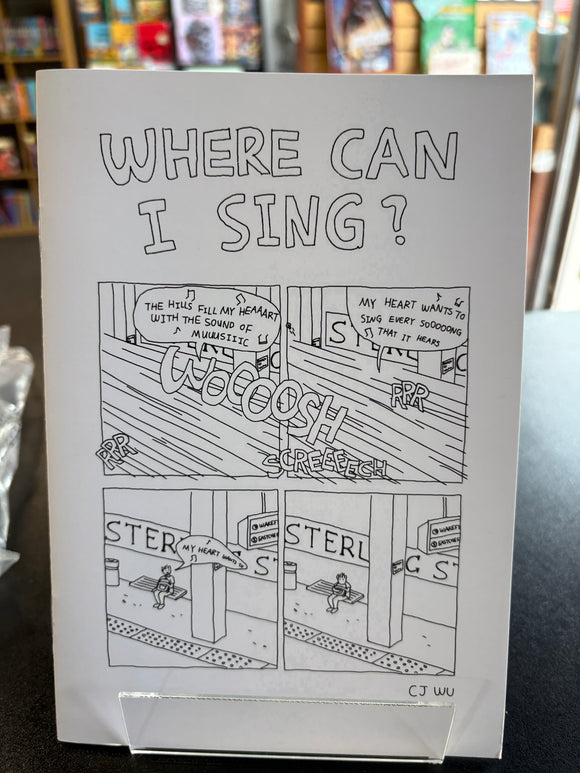 WHERE CAN
I SING?
THE HILLS FILL MY HEAAART
WITH THE SOUND OF
MUUUSIIIC
MY HEART WANTS TO
SING EVERY SOOOOONG
THAT IT HEARS
WOOOOOSH
RRR
RRR
SCREEEEECH
STER
MY HEART WANTS TO
S
STERL
G S
CJ WU